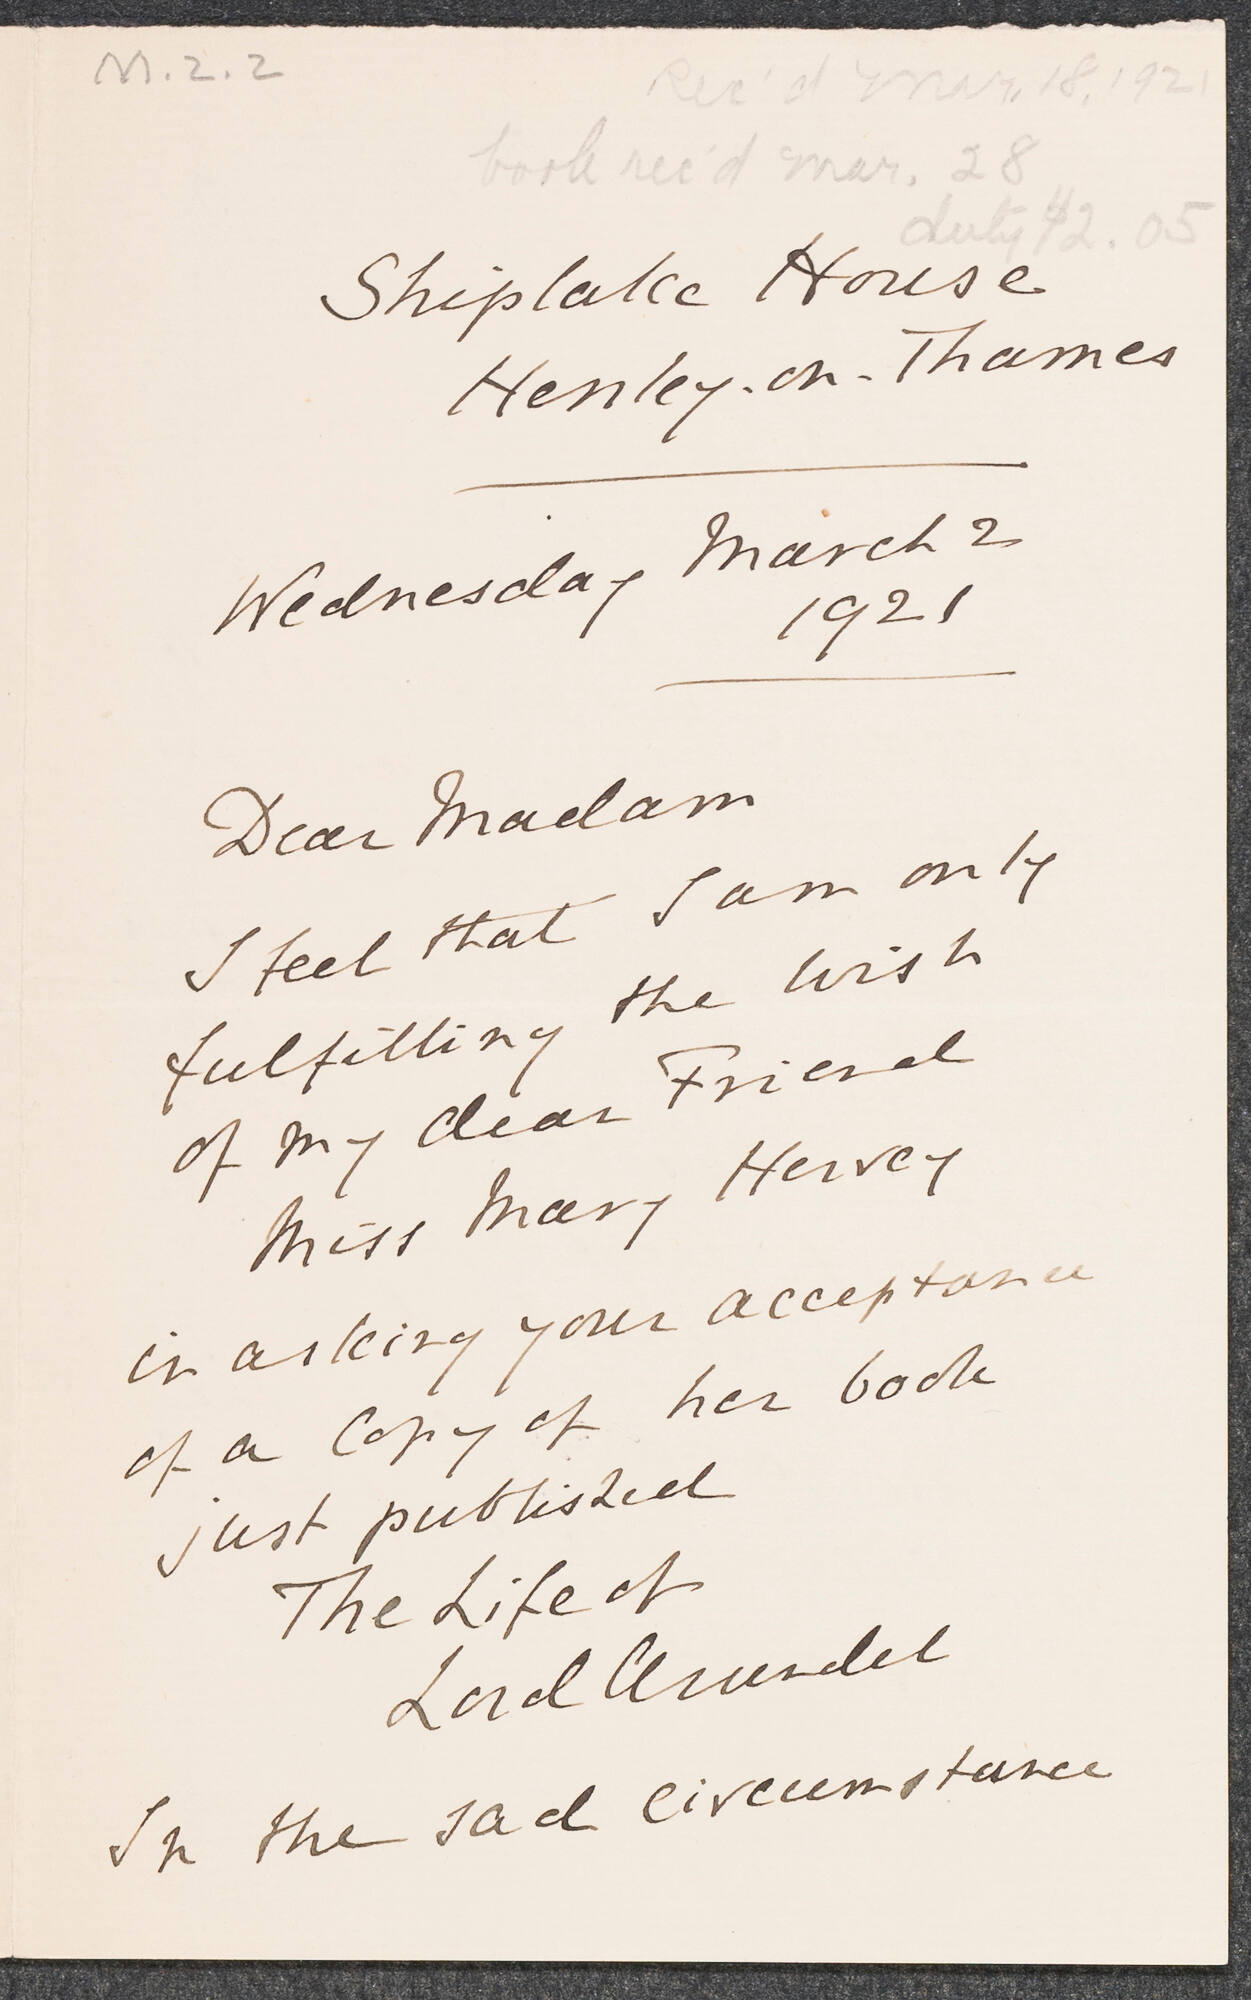 M.2.2
Rec'd Mar. 18, 1921
book rec'd Mar. 28
duty $2.05
Shiplake House
Henley-on-Thames
Wednesday March 2
1921
Dear Madam
I feel that I am only
fulfilling the wish
of my dear Friend
Miss Mary Hervey
in asking your acceptance
of a Copy of her book
just published
The Life of
Lord Arundel
In the sad circumstance